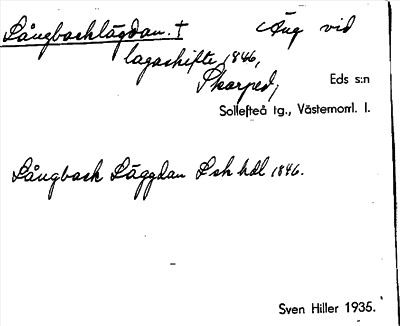 Långbacklägdan. † Äng vid
lagaskifte 1846,
Skarped,
Eds s:n
Sollefteå tg., Västernorrl. l.
Långback Läggdan Lsk hdl 1846.
Sven Hiller 1935.